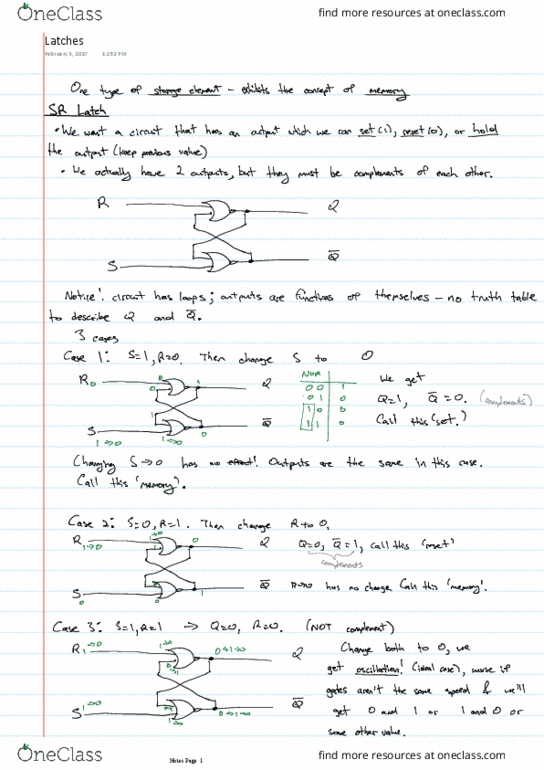 OneClass find more resources at oneclass.com
Latches
February 3, 2017 12:52 PM
One type of storage element - exhibits the concept of memory
SR Latch
• We want a circuit that has an output which we can set (1), reset (0), or hold
the output (keep previous value)
• We actually have 2 outputs, but they must be complements of each other.
R Q
S Q̅
Notice! circuit has loops; outputs are functions of themselves - no truth table
to describe Q and Q̅.
3 cases
Case 1: S=1, R=0. Then change S to 0
R 0 Q
S 1→0 1→0 0 Q̅
NOR
0 0 1
0 1 0
1 0 0
1 1 0
We get
Q=1, Q̅=0. (complements)
Call this 'set.'
Changing S→0 has no effect! Outputs are the same in this case.
Call this 'memory'.
Case 2: S=0, R=1. Then change R to 0.
R 1→0 1→0 0 Q
S 0 0 1 Q̅
Q=0, Q̅=1, call this 'reset'
complements
R→0 has no change Call this 'memory'.
Case 3: S=1, R=1 → Q=0, R=0. (NOT complement)
R 1→0 1→0 0→1→0 Q
S 1→0 0→1→0 Q̅
Change both to 0, we
get oscillation! (ideal case), worse if
gates aren't the same speed & we'll
get 0 and 1 or 1 and 0 or
some other value.
Notes Page 1
OneClass find more resources at oneclass.com